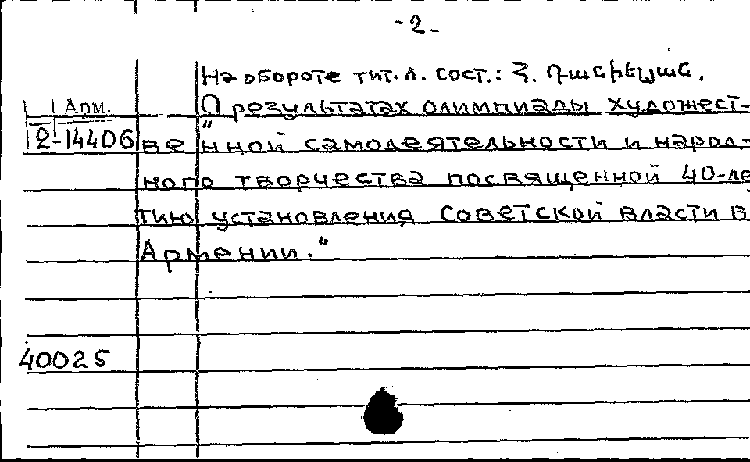 -2-
На обороте тит.л. сост.: Հ. Դանիելյան.
Арм.
"О результатах олимпиады художест-
2-14406
ве нной самодеятельности и народ-
ного творчества посвященной 40-ле
тию установления Советской власти в
Армении."
40025